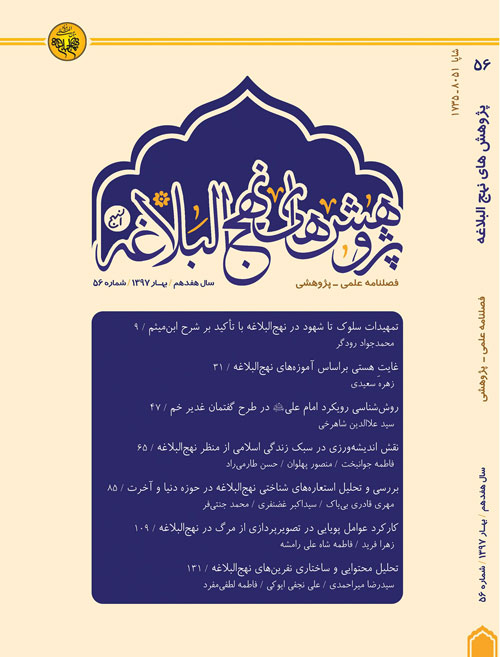 پژوهش های نهج البلاغه
سال هفدهم / بهار ۱۳۹۷ / شماره ۵۶
فصلنامه علمی - پژوهشی
تمهیدات سلوک تا شهود در نهج‌البلاغه با تأکید بر شرح ابن‌میثم / ۹
محمدجواد رودگر
غایت هستی براساس آموزه‌های نهج‌البلاغه / ۳۱
زهره سعیدی
روش‌شناسی رویکرد امام علی در طرح گفتمان غدیر خم / ۴۷
سید علاالدین شاهرخی
نقش اندیشه‌ورزی در سبک زندگی اسلامی از منظر نهج‌البلاغه / ۶۵
فاطمه جوانبخت / منصور پهلوان / حسن طارمی‌راد
بررسی و تحلیل استعاره‌های شناختی نهج‌البلاغه در حوزه دنیا و آخرت / ۸۵
مهری قادری بی‌باک / سیداکبر غضنفری / محمد جنتی‌فر
کارکرد عوامل پویایی در تصویرپردازی از مرگ در نهج‌البلاغه / ۱۰۹
زهرا فرید / فاطمه شاه علی رامشه
تحلیل محتوایی و ساختاری نفرین‌های نهج‌البلاغه / ۱۳۱
سیدرضا میراحمدی / علی نجفی ایوکی / فاطمه لطفی‌مفرد
شاپا ۸۰۵۱ - ۱۷۳۵
۵۶
پژوهش های نهج البلاغه
فصلنامه علمی - پژوهشی
سال هفدهم / بهار ۱۳۹۷ / شماره ۵۶